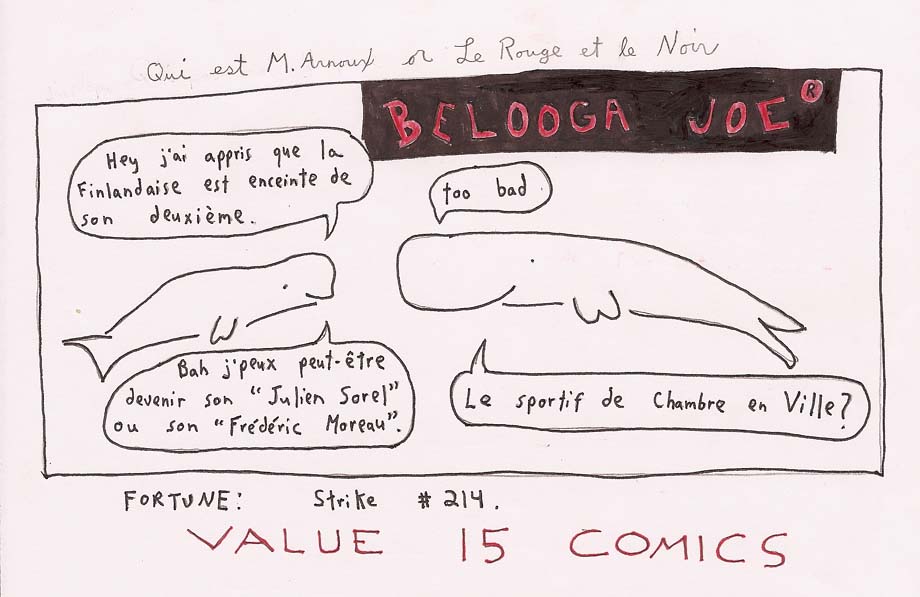 Qui est M. Arnoux or Le Rouge et le Noir
BELOOGA JOE ®
Hey j'ai appris que la
Finlandaise est enceinte de
son deuxième.
too bad
Bah j'peux peut-être
devenir son "Julien Sorel"
ou son "Frédéric Moreau".
Le sportif de Chambre en Ville?
FORTUNE: Strike # 214.
VALUE 15 COMICS